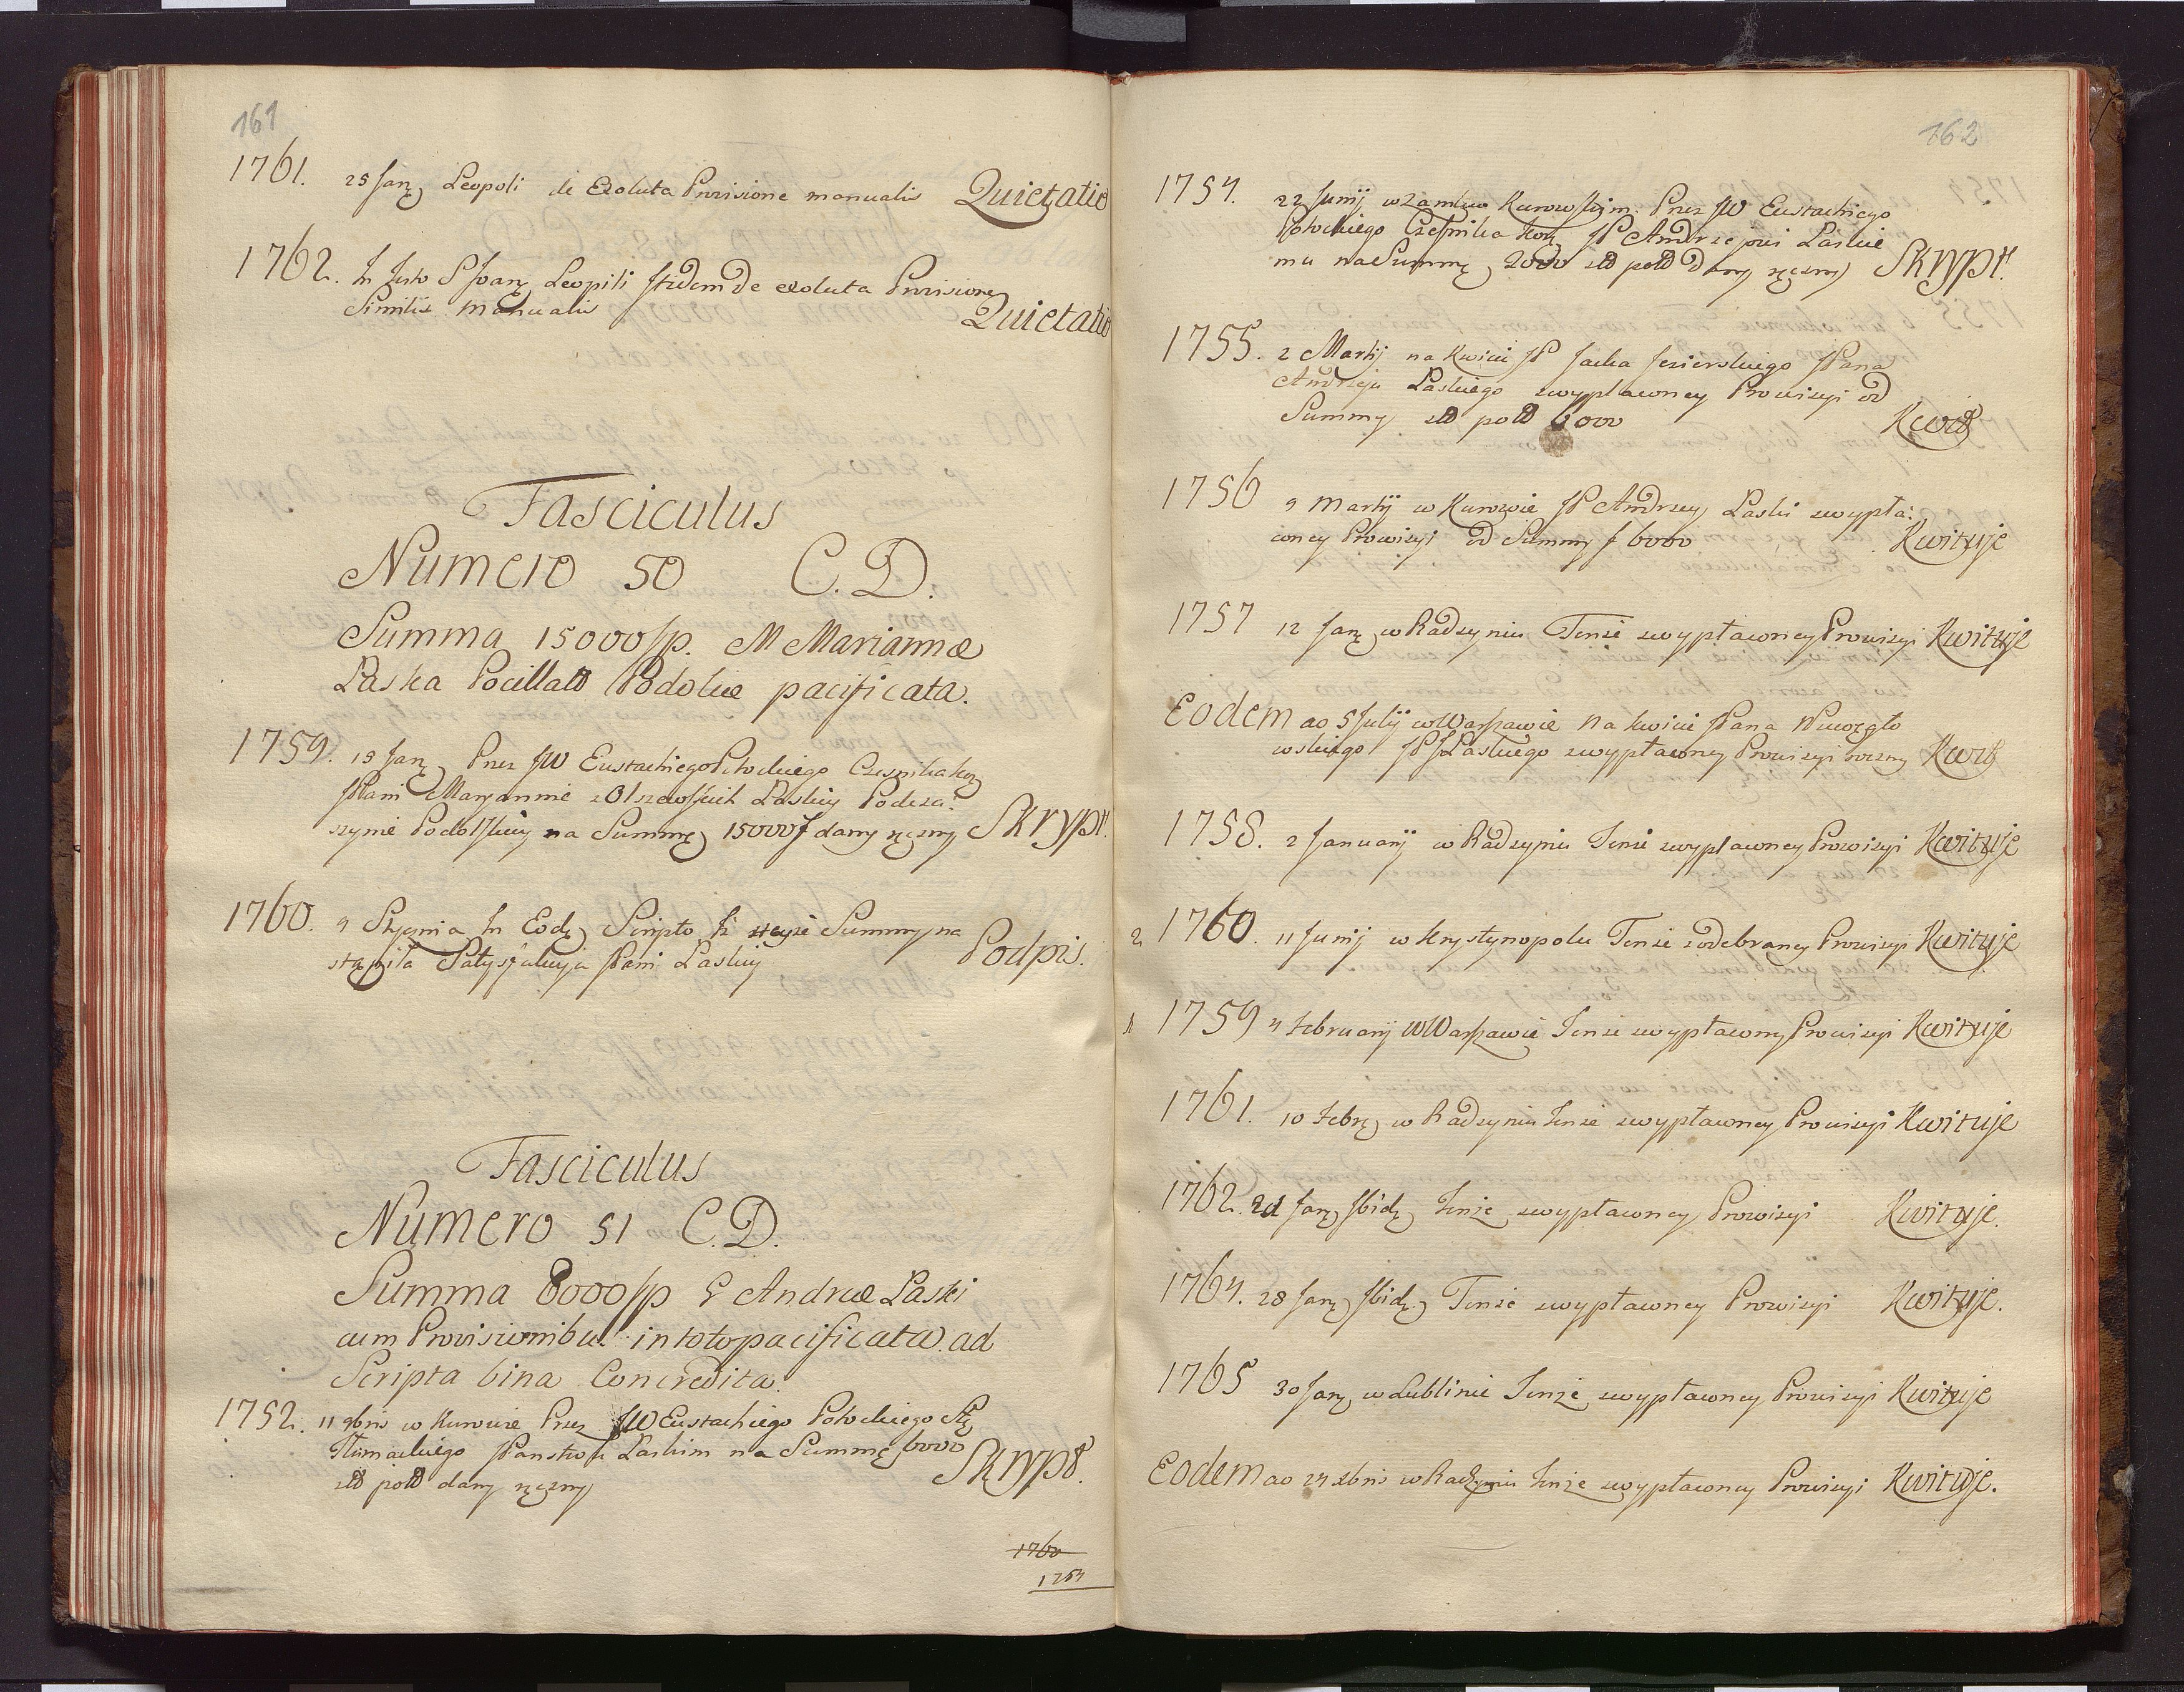 161
1761. 25 Janȝ Leopoli de Exoluta Provisione manualis Quietatio
1762. In Festo S Joanȝ Leopoli itidem De exoluta Provisione
Similis manualis Quietatio
Fasciculus
Numero 50 C.D.
Summa 15000 fp. M Mariannæ
Laska Pocillato Podoliæ pacificata.
1759. 15 Janȝ Prez JW Eustachiego Potockiego Czesnika Korȝ
JPani Maryannie z Olszewskich Laskiey Podcza:
szynie Podolskiey na Summę 15000 f dany ręczny Skrypt.
1760. 9 Stycznia In Eodȝ Scripto iż teyże Summy na
stąpiła Satysfakcyja JPani Laskiey Podpis.
Fasciculus
Numero 51 C.D.
Summa 8000 fp G Andreæ Laski
cum Provisionibus in toto pacificata ad
Scripta bina Concredita.
1752. 11 9bris w Kurowie Prez JW Eustachiego Potockiego Stȝ
Tłumackiego JPanstwu Laskim na Summę 6000
zło pols dany ręczny Skrypt.
1760
1754
162
1754. 22 Junij w Zamku Kurowskim Prez JW Eustachiego
Potockiego Czesnika Korȝ JP Andrzejowi Laskie
mu na Summę 2000 zło pols Dany ręczny Skrypt.
1755. 2 Martij na Kwicie JP Jacka Jezierskiego JPana
Andrzeja Laskiego z wypłaconey Prowizyi od
Summy zło pols 6000 Kwit
1756 9 Martij w Kurowie JP Andrzey Laski z wypła:
coney Prowizyi od Summy f 6000 Kwituje
1757 12 Janȝ w Radzyniu Tenże z wypłaconey Prowizyi Kwituje
Eodem ao 5 Julij w Warszawie Na kwicie JPana
wskiego JP Laskiego z wypłaconey Prowizyi roczney Kwit
1758. 2 Januarij w Radzyniu Tenże z wypłaconey Prowizyi Kwituje
2 1760. 11 Junij w Krystynopolu Tenże z odebraney Prowizyi Kwituje
1 1759 4 Februarij w Warszawie Tenże z wypłaconey Prowizyi Kwituje
1761. 10 Febrȝ w Radzyniu Tenże z wypłaconey Prowizyi Kwituje
1762. 21 Janȝ Ibidȝ Tenże z wypłaconey Prowizyi Kwituje.
1764. 28 Janȝ Ibidȝ Tenże z wypłaconey Prowizyi Kwituje.
1765 30 Janȝ w Lublinie Tenże z wypłaconey Prowizyi Kwituje
Eodem ao 24 xbris w Radzyniu Tenże z wypłaconey Prowizyi Kwituje.